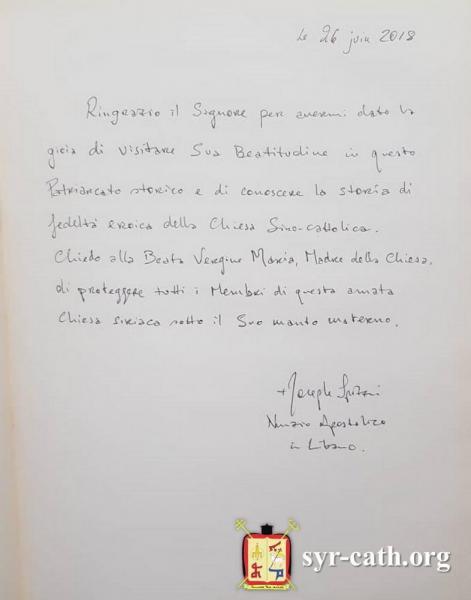 Le 26 juin 2018
Ringrazio il Signore per avermi dato la
gioia di visitare Sua Beatitudine in questo
Patriarcato storico e di conoscere la storia di
fedeltà eroica della Chiesa Siro-cattolica.
Chiedo alla Beata Vergine Maria, Madre della Chiesa,
di proteggere tutti i Membri di questa amata
Chiesa siriaca sotto il Suo manto materno.
+ Joseph Spiteri
Nunzio Apostolico
in Libano.
syr-cath.org